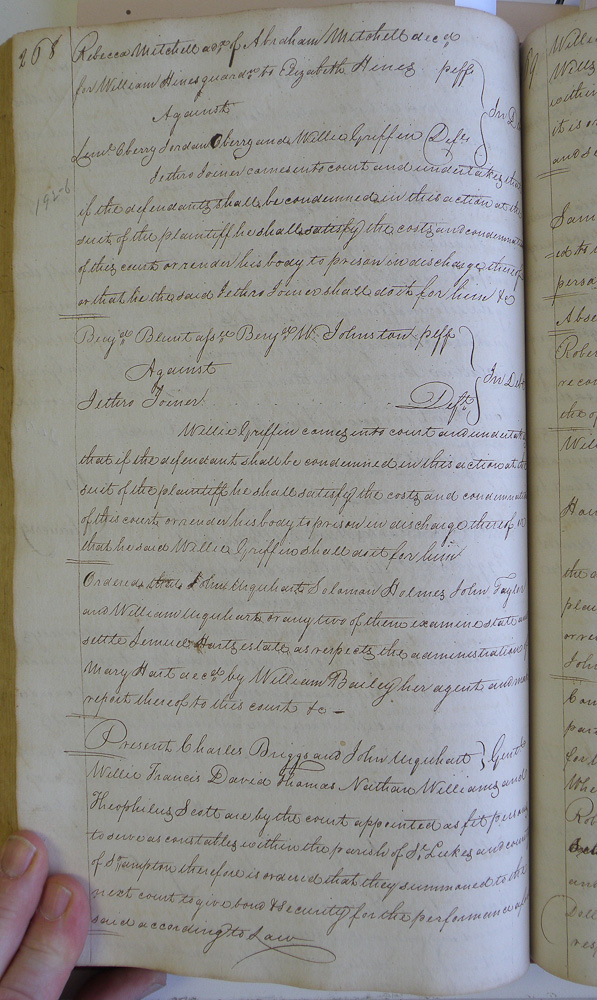 268
Rebecca Mitchell adx. of Abraham Mitchell decd.
for William Hines guardn. to Elizabeth Hines peffs
Against
In De
Leml. Eberry Jordan Eberry and Willie Griffin Defts
Jethro Joiner comes into court and undertakes that
if the defendants shall be condemned in this action at the
suit of the plaintiff he shall satisfy the costs and condemnat
of this court or render his body to prison in discharge thereof
or that he the said Jethro Joiner shall do it for him &c
Benja. Blunt asse. Benja. W. Johnston peff
Against
In Deb
Jethro Joiner Deft.
Willie Griffin comes into court and undertak
that if the defendant shall be condemned in this action at the
suit of the plaintiff he shall satisfy the costs and condemnatio
of this court or render his body to prison in discharge thereof or
that he said Willie Griffin shall do it for him
Ordered that John Urquhart Solomon Holmes John Taylor
and William Urquhart or any two of them examine state and
settle Lemuel Harts estate as respects the administration of
Mary Hart decd. by William Bailey her agent and make
report thereof to this court &c —
Present Charles Briggs and John Urquhart } Gentle
Willie Francis David Thomas Nathan Williams and
Theophilus Scott are by the court appointed as fit persons
to serve as constables within the parish of St. Lukes and county
of S. hampton therefore is ordered that they summoned to the
next court to give bond & security for the performance of
said according to Law